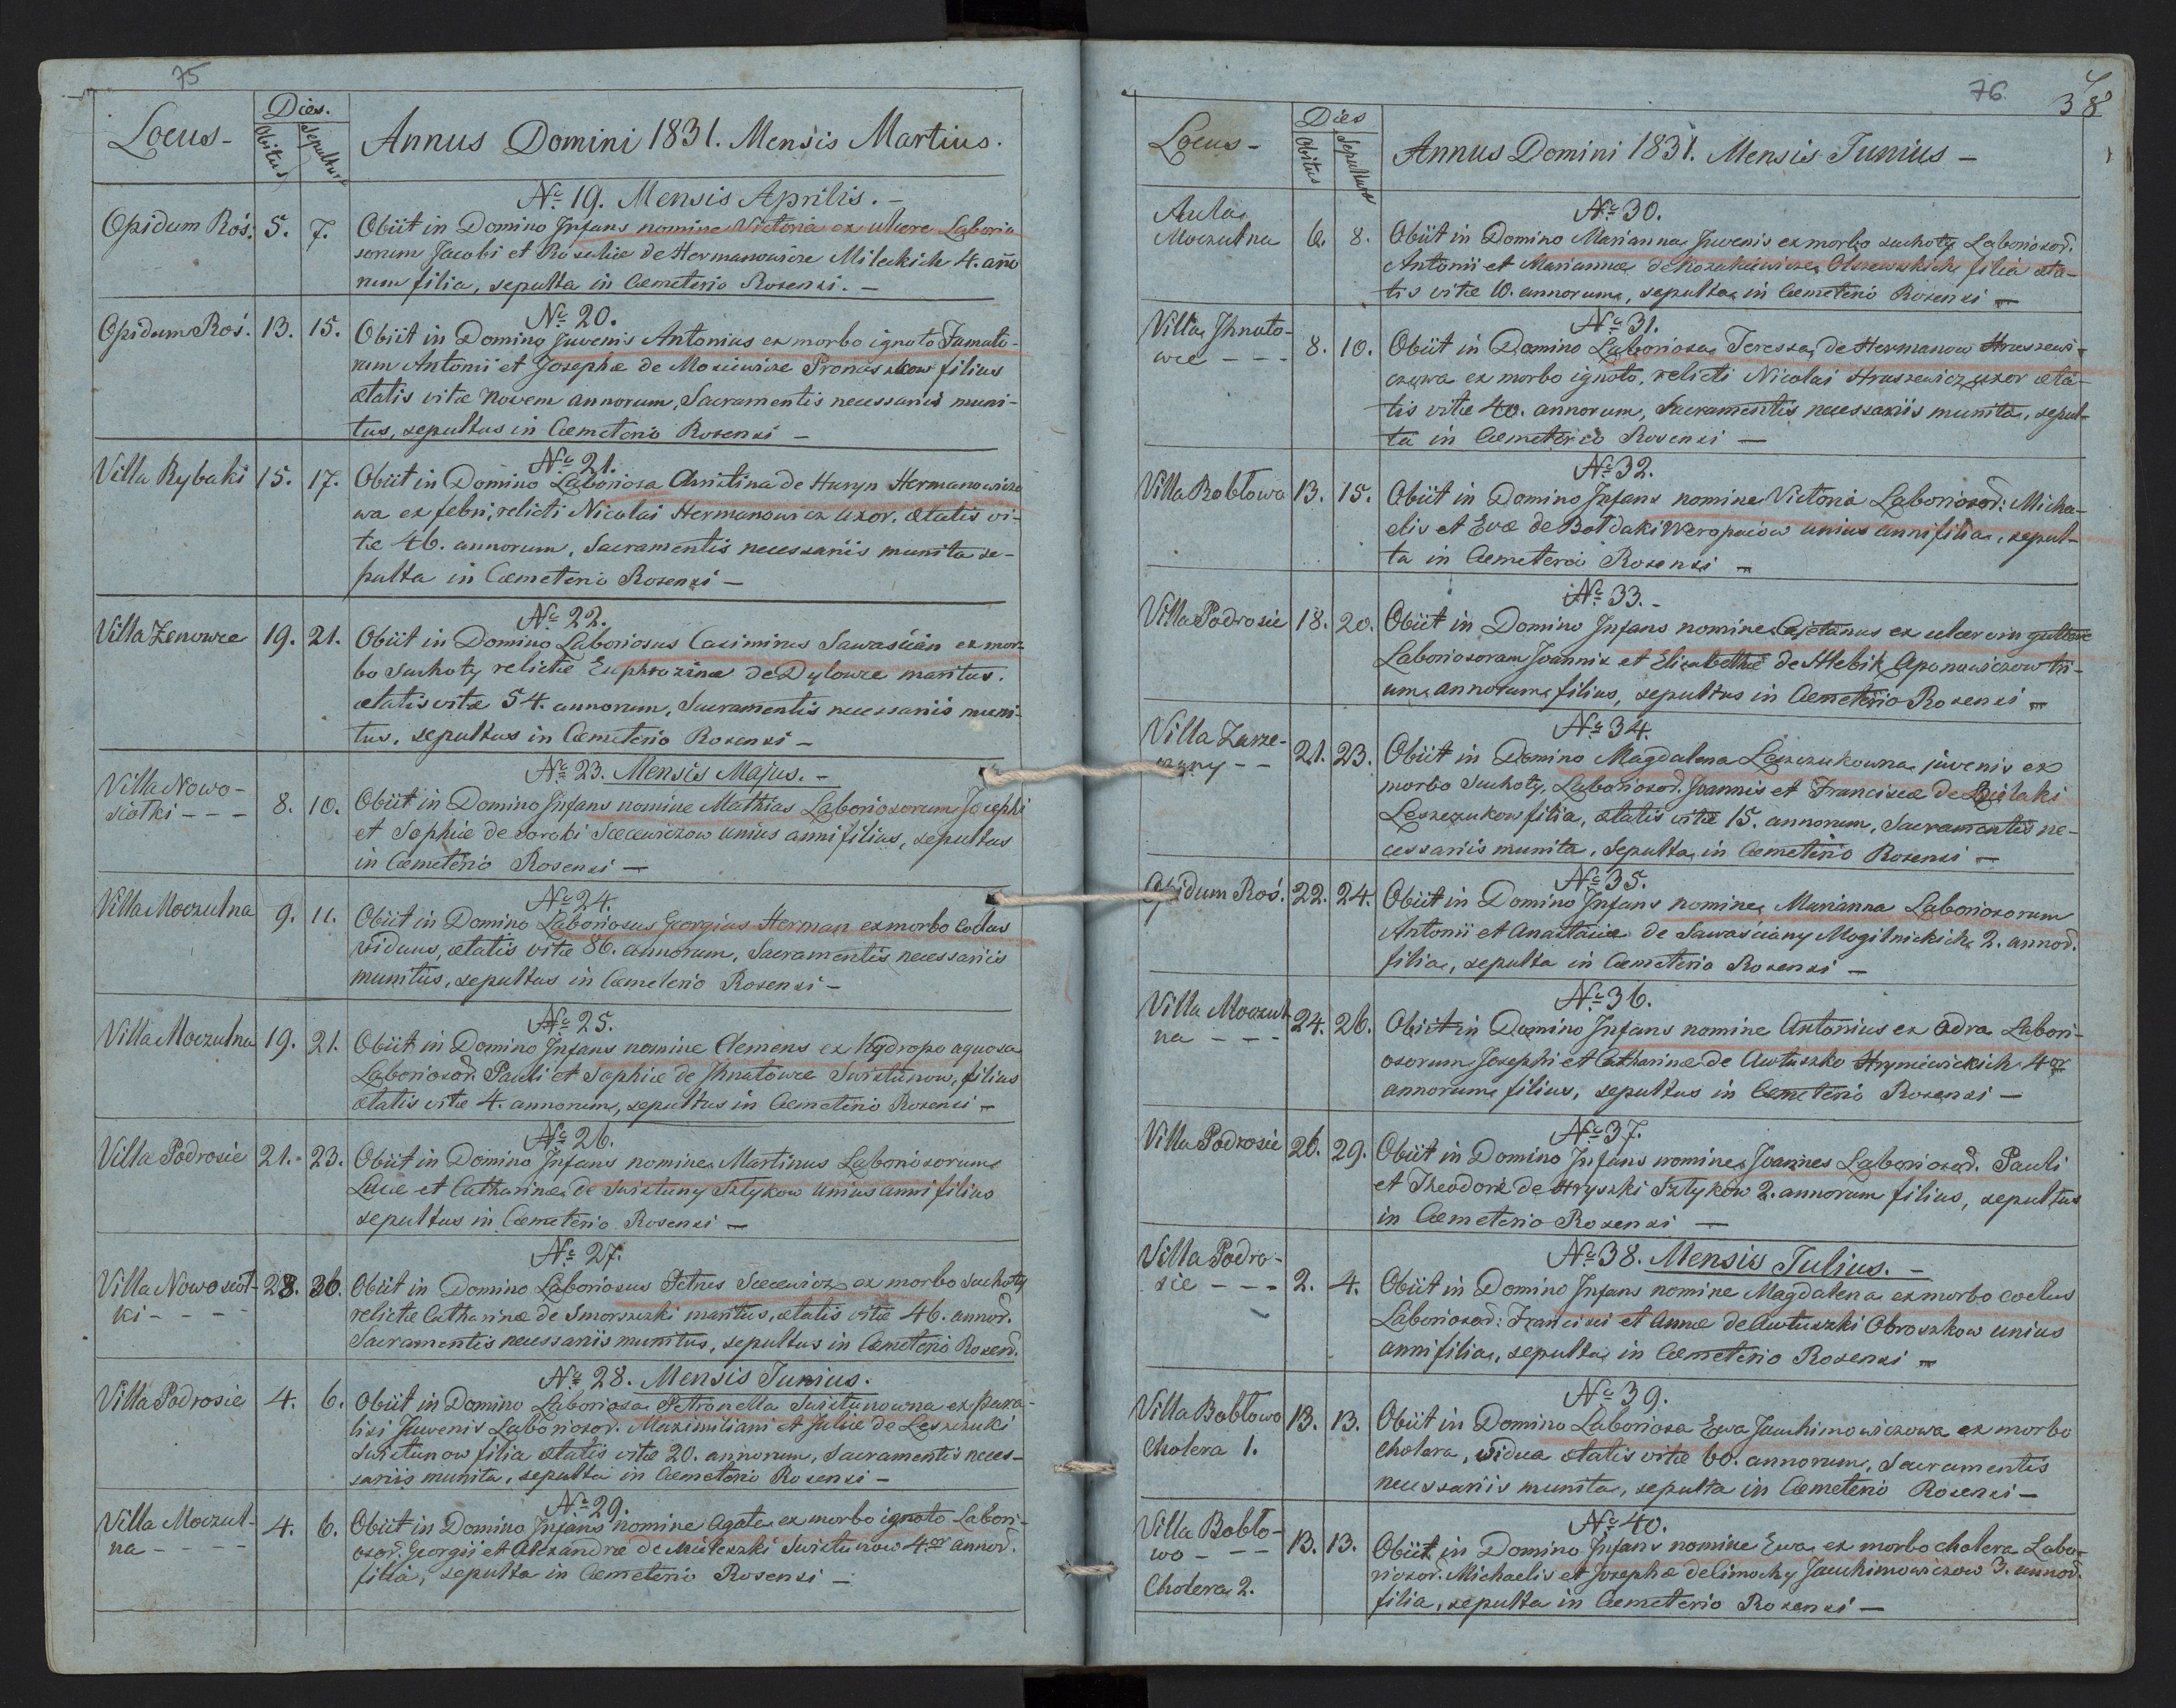 75
Locus -
Dies.
Obitus
Sepultura
Annus Domini 1831. Mensis Martius.
No 19. Mensis Aprilis. -
Opidum Roś. 5. 7. Obiit in Domino Infans nomine Victoria ex ulcere Laborio
sorum Jacobi et Rosaliæ de Hermanowicze Mileckich 4. anno
rum filia, sepulta in Cæmeterio Rosensi. -
No 20.
Opidum Roś. 13. 15. Obiit in Domino Juvenis Antonius ex morbo ignoto Famato-
rum Antonii et Josephæ de Mosiewicze Pronaszkow filius
ætatis vitæ novem annorum, Sacramentis necessariis muni-
tus, sepultus in Cæmeterio Rosensi -
No 21.
Villa Rybaki 15. 17. Obiit in Domino Laboriosa Christina de Huryn Hermanowiczo
wa ex febri, relicti Nicolai Hermanowicz uxor, ætatis vi-
tæ 46. annorum, Sacramentis necessariis munita se-
pulta in Cæmeterio Rosensi -
No 22.
Villa Zenowce 19. 21. Obiit in Domino Laboriosus Casimirus Sawaścian ex mor-
bo Suchoty relictæ Euphrozinæ de Dylowce maritus.
ætatis vitæ 54. annorum, Sacramentis necessariis muni-
tus, sepultus in Cæmeterio Rosensi -
No 23. Mensis Majus. -
Villa Nowo-
siołki - - - 8. 10. Obiit in Domino Infans nomine Mathias Laboriosorum Josephi
et Sophiæ de Soroki Siecewiczow unius anni filius, sepultus
in Cæmeterio Rosensi -
No 24.
Villa Moczulna 9. 11. Obiit in Domino Laboriosus Georgius Herman ex morbo Coelus
viduus, ætatis vitæ 86. annorum, Sacramentis necessariis
munitus, sepultus in Cæmeterio Rosensi -
No 25.
Villa Moczulna 19. 21. Obiit in Domino Infans nomine Clemens ex hydrope aquosa
Laboriosor. Pauli et Sophiæ de Ihnatowce Swistunow, filius
ætatis vitæ 4. annorum, sepultus in Cæmeterio Rosensi -
No 26.
Villa Podrosie 21. 23. Obiit in Domino Infans nomine Martinus Laboriosorum
Lucæ et Catharinæ de Swistuny Sztykow unius anni filius
sepultus in Cæmeterio Rosensi -
No 27.
Villa Nowosioł-
ki - - - 28. 30. Obiit in Domino Laboriosus Petrus Siecewicz ex morbo Suchoty
relictæ Catharinæ de Smorszczki maritus, ætatis vitæ 46. annor.
Sacramentis necessariis munitus, sepultus in Cæmeterio Rosens.
No 28. Mensis Junius.
Villa Podrosie 4. 6. Obiit in Domino Laboriosa Petronella Swistunowna ex para-
lisi Juvenis Laboriosor. Maximiliani et Juliæ de Leszczuki
Swistunow filia ætatis vitæ 20. annorum, Sacramentis neces-
sariis munita, sepulta in Cæmeterio Rosensi -
No 29.
Villa Moczul-
na - - - - 4. 6. Obiit in Domino Infans nomine Agata ex morbo ignoto Labori-
osor. Georgii et Alexandræ de Swistunow 4or annor.
filia, sepulta in Cæmeterio Rosensi -
76.
38
Locus -
Dies
Obitus
Sepultura
Annus Domini 1831. Mensis Junius -
No 30.
Aula
Moczulna 6. 8. Obiit in Domino Marianna Juvenis ex morbo suchoty Laboriosor.
Antonii et Mariannæ de Kozakiewicze Olszewskich filia æta-
tis vitæ 10. annorum, sepulta in Cæmeterio Rosensi -
No 31.
Villa Ihnato-
wce - - - 8. 10. Obiit in Domino Laboriosa Teressa de Hermanow Hruszewi-
czowa ex morbo ignoto, relicti Nicolai Hruszewicz uxor æta-
tis vitæ 40. annorum, Sacramentis necessariis munita, sepul-
ta in Cæmeterio Rosensi -
No 32.
Villa Bobłowo 13. 15. Obiit in Domino Infans nomine Victoria Laboriosor: Micha-
elis et Evæ de Bołdaki Weropaiów unius anni filia, sepul-
ta in Cæmeterio Rosensi -
No 33. -
Villa Podrosie 18. 20. Obiit in Domino Infans nomine Cajetanus ex ulcere in gutture
Laboriosoram Joannis et Elizabethæ de Hlebik Aponowiczow tri-
um annorum filius, sepultus in Cæmeterio Rosensi -
No 34.
Villa Zarze-
czany - - 21. 23. Obiit in Domino Magdalena Leszczukowna juvenis ex
morbo Suchoty, Laboriosor. Joannis et Franciscæ de Bielaki
Leszczukow filia, ætatis vitæ 15. annorum, Sacramentis ne-
cessariis munita, sepulta in Cæmeterio Rosensi -
No 35.
Opidum Roś. 22. 24. Obiit in Domino Infans nomine Marianna Laboriosorum
Antonii et Anastasiæ de Sawaściany Mogilnickich 2. annor.
filia, sepulta in Cæmeterio Rosensi -
No 36.
Villa Moczul-
na - - - 24. 26. Obiit in Domino Infans nomine Antonius ex odra Labori-
osorum Josephi et Catharinæ de Awtuszko Hryniewickich 4or
annorum filius, sepultus in Cæmeterio Rosensi -
No 37.
Villa Podrosie 26. 29. Obiit in Domino Infans nomine Joannes Laboriosor. Pauli
et Theodoræ de Hryszki Sztykow 2. annorum filius, sepultus
in Cæmeterio Rosensi -
No 38. Mensis Julius. -
Villa Podro-
sie - - - 2. 4. Obiit in Domino Infans nomine Magdalena ex morbo coelus
Laboriosor: Francisci et Annæ de Awtuszki Obroszkow unius
anni filia, sepulta in Cæmeterio Rosensi -
No 39.
Villa Bobłowo 13. 13. Obiit in Domino Laboriosa Ewa Jauchimowiczowa ex morbo
Cholera 1. cholera, vidua ætatis vitæ 60. annorum, Sacramentis
necessariis munita, sepulta in Cæmeterio Rosensi -
No 40.
Villa Bobło-
wo - - - 13. 13. Obiit in Domino Infans nomine Ewa ex morbo cholera Labo-
Cholera 2. riosor. Michaelis et Josephæ de Cimochy Jauchimowiczow 3. annor.
filia, sepulta in Cæmeterio Rosensi -